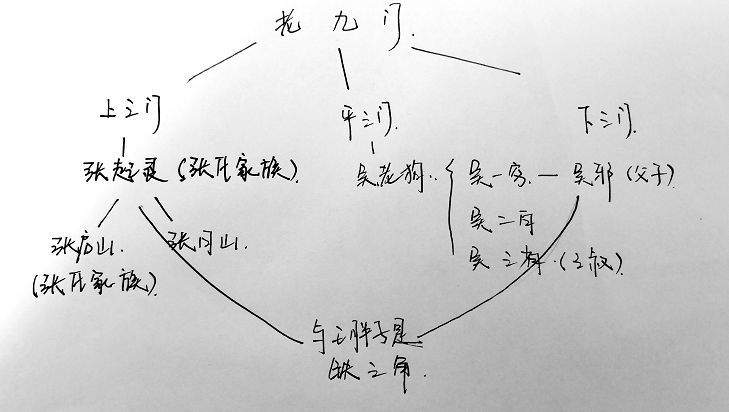 老九门.
上三门
平三门.
下三门.
张起灵(张氏家族).
吴老狗..
吴一穷.—吴邪(父子)
吴二白
吴三省.(三叔)
张启山.
(张氏家族).
张日山.
与王胖子是
铁三角.